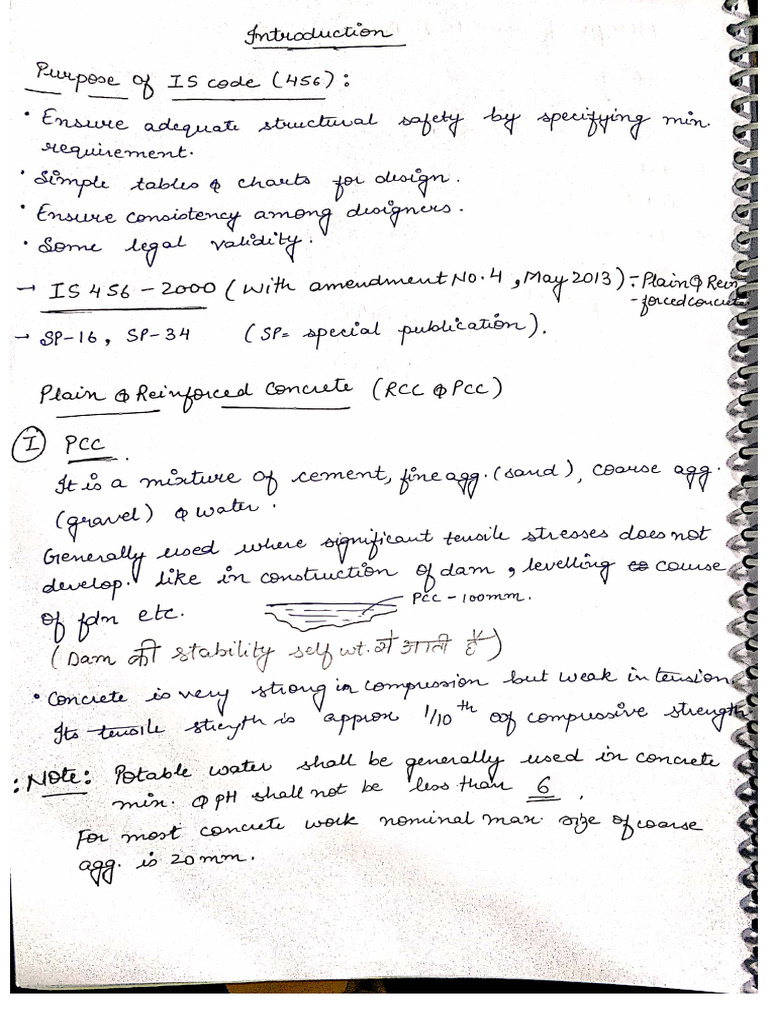 Introduction
Purpose of IS code (456):
• Ensure adequate structural safety by specifying min.
requirement.
• Simple tables & charts for design.
• Ensure consistency among designers.
• Some legal validity.
→ IS 456 - 2000 (with amendment No. 4, May 2013) :- Plain & Rein
-forced concrete
→ SP-16, SP-34 (SP= special publication).
Plain & Reinforced Concrete (RCC & PCC)
I PCC
It is a mixture of cement, fine agg. (sand), coarse agg.
(gravel) & water.
Generally used where significant tensile stresses does not
develop. like in construction of dam, levelling course
of fdn etc.
PCC - 100mm.
(Dam की stability self wt. से आती है)
• Concrete is very strong in compression but weak in tension.
Its tensile strength is approx 1/10th of compressive strength
:Note: Potable water shall be generally used in concrete
min. & pH shall not be less than 6.
For most concrete work nominal max. size of coarse
agg. is 20mm.